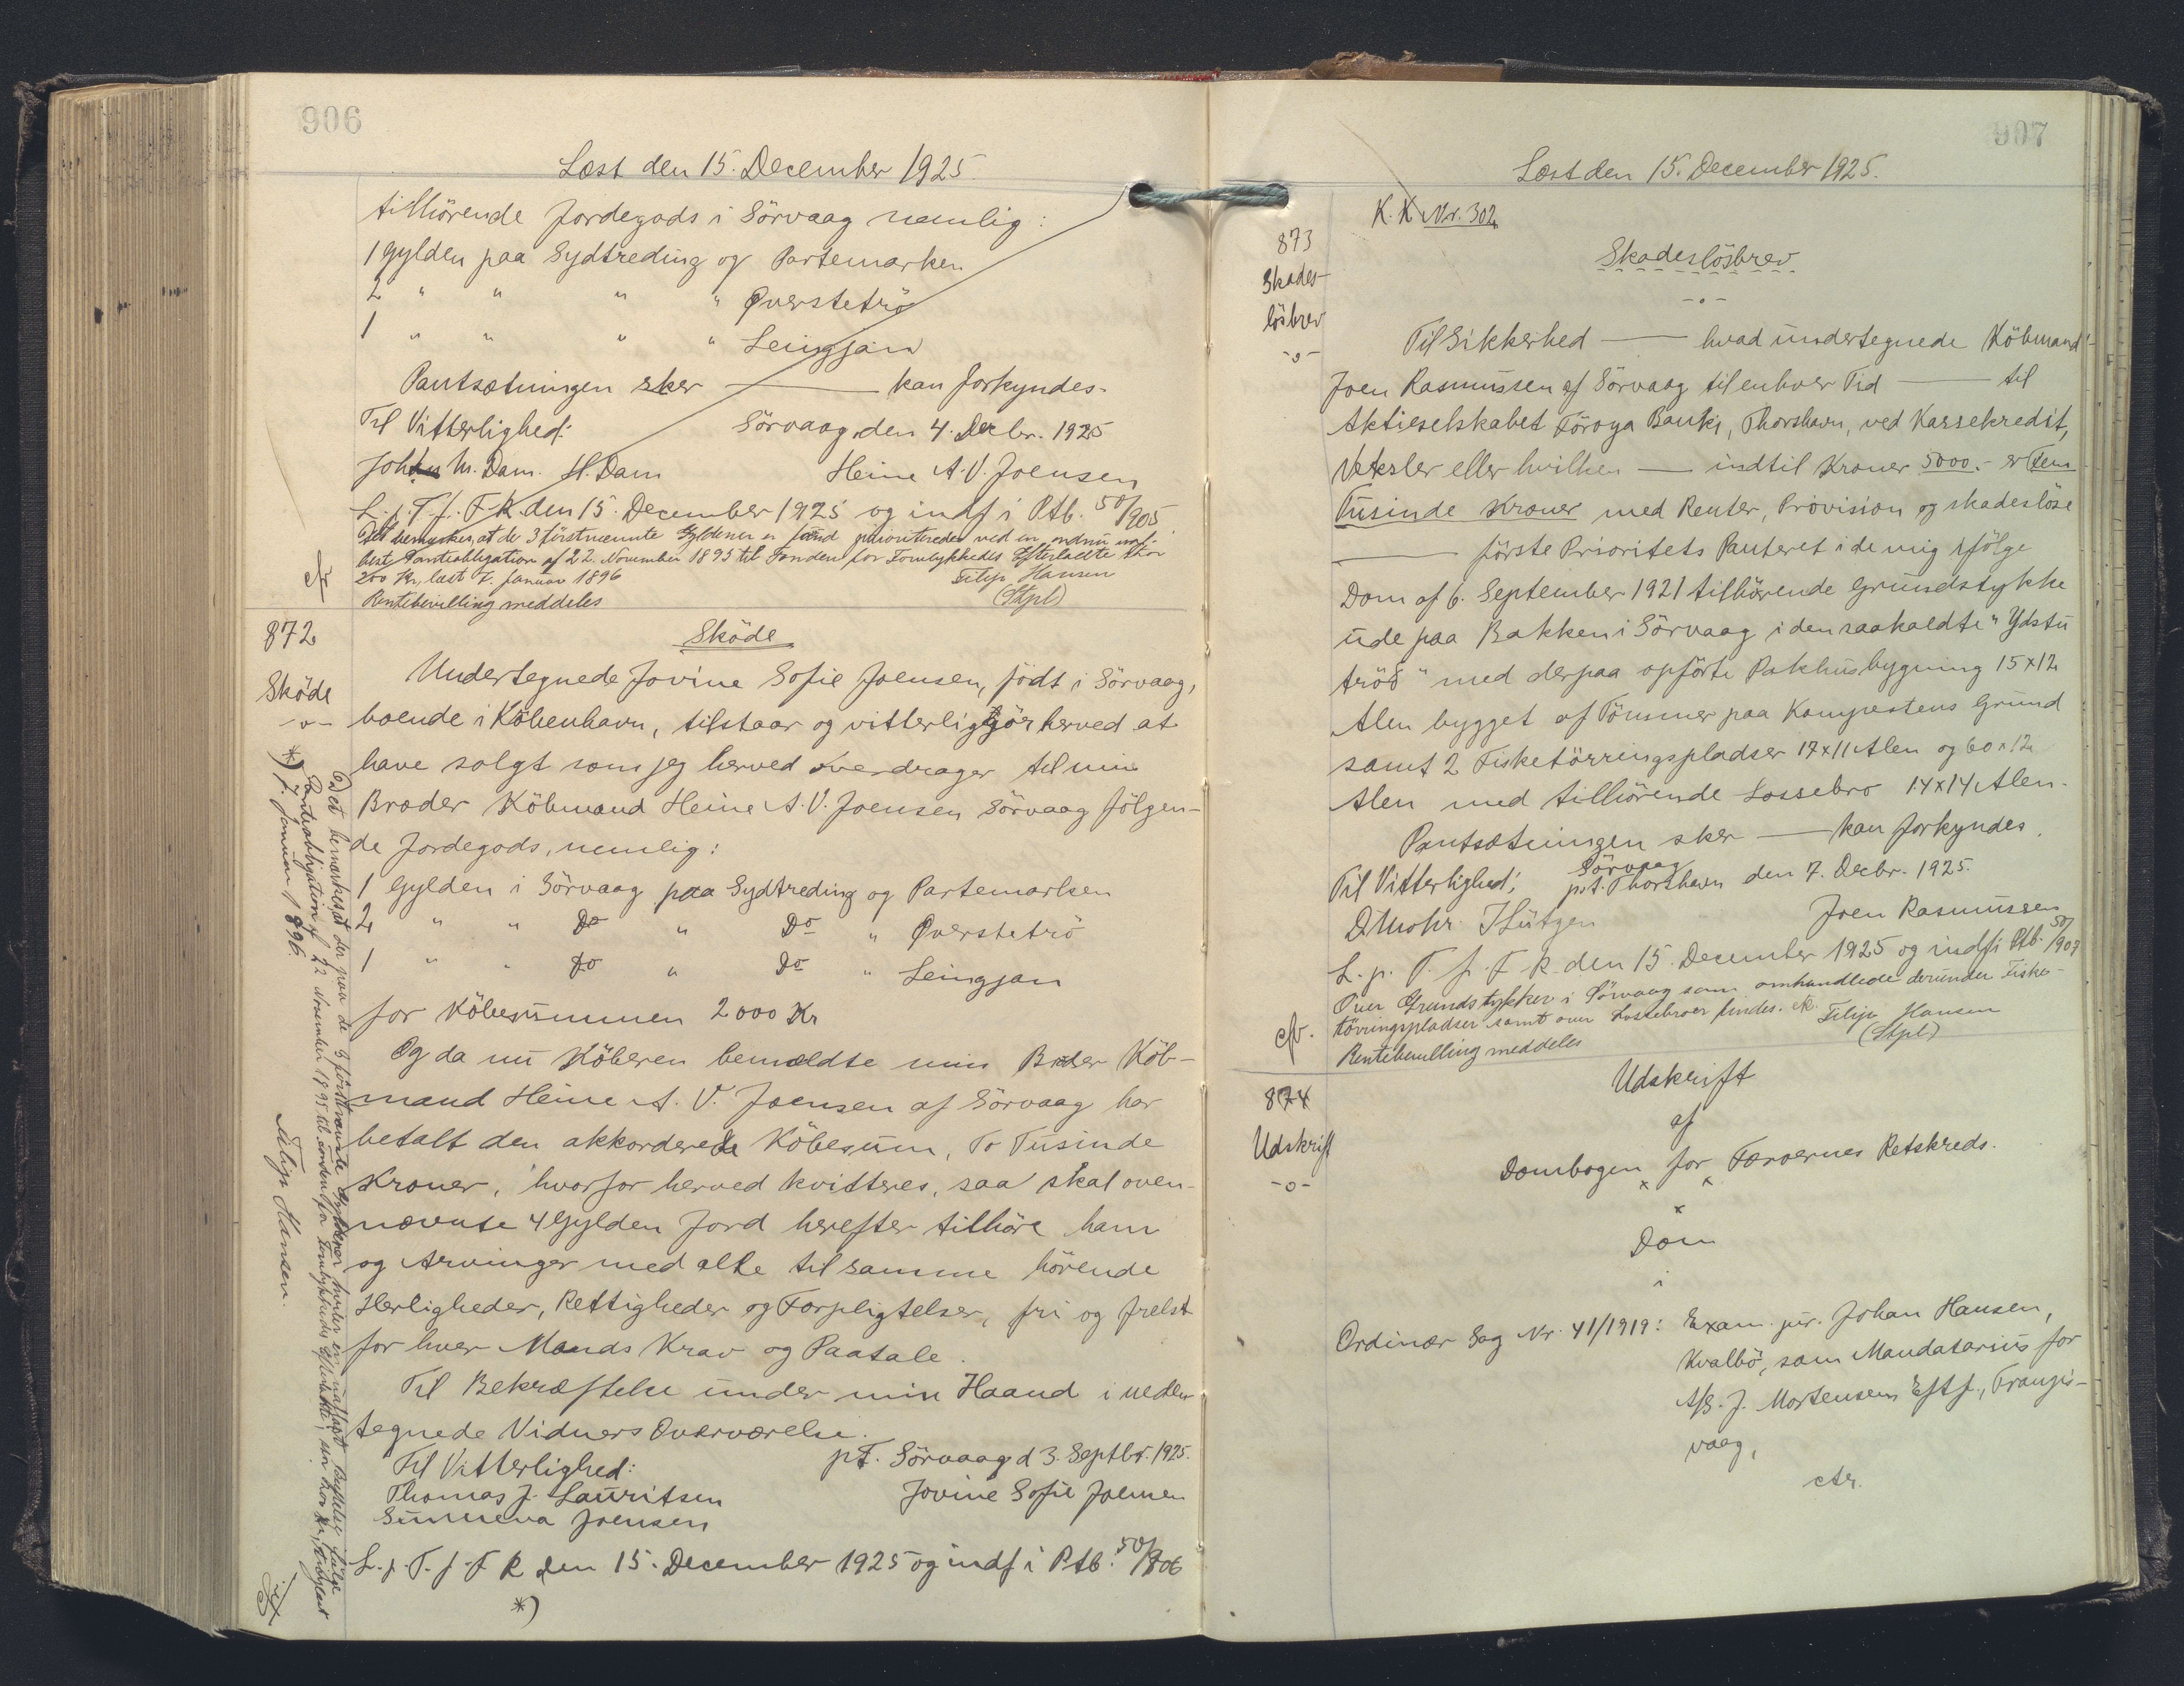 906
Læst den 15. December 1925.
tilhörende Jordegods i Sörvaag nemlig:
1 Gylden paa Sydtreding og Partemarken
2 " " " " Qverstetrö
1 " " " " Leingjan
Pantsætningen sker — kan forkyndes.
Til Vitterlighed: Sörvaag, den 4. Decbr. 1925
M. Dam. H. Dam Heine A. V. Joensen
L. p. T. f. F. R. den 15. December 1925 og indf i Ptb. 50/905
Det bemærkes, at de 3 förstnævnte Gyldener er prioriterede ved en endnu
læst Panteobligation af 22. November 1895 til Fonden for Efterladte stor
200 Kr, læst 7. Januar 1896 Filip Hansen
Rentebevilling meddeles (Stpl)
cfr
872
Sköde
Sköde
-o-
Undertegnede Jovine Sofie Joensen, födt i Sörvaag,
boende i Köbenhavn, tilstaar og vitterliggjör herved at
have solgt som jeg herved overdrager til min
Broder Köbmand Heine A. V. Joensen Sörvaag fölgen-
de Jordegods, nemlig:
1 Gylden i Sörvaag paa Sydtreding og Partemarken
2 " " Do " Do " Qverstetrö
1 " " Do " Do " Leingjan
for Köbesummen 2000 Kr
Og da nu Köberen bemældte min Broder Köb-
mand Heine A. V. Joensen af Sörvaag har
betalt den akkorderede Köbesum, To Tusinde
Kroner, hvorfor herved kvitteres, saa skal oven-
nævnte 4 Gylden Jord herefter tilhöre ham
og Arvinger med alle til samme hörende
Herligheder, Rettigheder og Forpligtelser, fri og frelst
for hver Mands Krav og Paatale.
Til Bekræftelse under min Haand i neden
tegnede Vidners Overværelse.
Til Vitterlighed: pT. Sörvaag d 3. Septbr. 1925.
Thomas J. Lauritsen Jovine Sofie Joensen
Sunneva Joensen
L. p. T. f. F R den 15. December 1925 og indf i Ptb. 50/906
*)
*) Det bemærkes, at der paa de 3 förstnævnte Gyldener hviler en Hæftelse ifölge
Panteobligation af 22 November 1895 til Fonden for Efterladte, stor 200 Kr,
7. Januar 1896.
Filip Hansen.
907
Læst den 15. December 1925.
K. K Nr. 302
873
Skades-
lösbrev
-o-
Skadeslösbrev
-o-
Til Sikkerhed — hvad undertegnede Köbmand
Joen Rasmussen af Sörvaag til enhver Tid — til
Aktieselskabet Föroya Banki, Thorshavn, ved Kassekredit,
Veksler eller hvilken — indtil Kroner 5000.- er Fem
Tusinde Kroner med Renter, Provision og skadeslöse
— förste Prioritets Panteret i de mig ifölge
Dom af 6. September 1921 tilhörende Grundstykke
ude paa Bakken i Sörvaag i den saakaldte "Ydstu
tröð" med derpaa opförte Pakhusbygning 15x12
Alen bygget af Tömmer paa Kampestens Grund
samt 2 Fisketörringspladser 17x11 Alen og 60x12
Alen med tilhörende Lossebro 14x14 Alen.
Pantsætningen sker — kan forkyndes.
Til Vitterlighed: Sörvaag p.t. Thorshavn den 7. Decbr. 1925.
D Mohr J Lützen Joen Rasmussen
L. p. T. f. F R. den 15. December 1925 og indf i Ptb. 50/907
Over Grundstykker i Sörvaag som omhandlede derunder Fiske-
törringspladser samt over Lossebroer findes. Filip Hansen
Rentebevilling meddeles (Stpl)
cfr.
874
Udskrift
-o-
Udskrift
af
Dombogen for Færöernes Retskreds.
x x
x
Dom
i
Ordinær Sag Nr. 41/1919: Exam. jur. Johan Hansen,
Kvalbö, som Mandatarius for
A/S. J. Mortensens Eftf., Frangis-
vaag,
ctr.